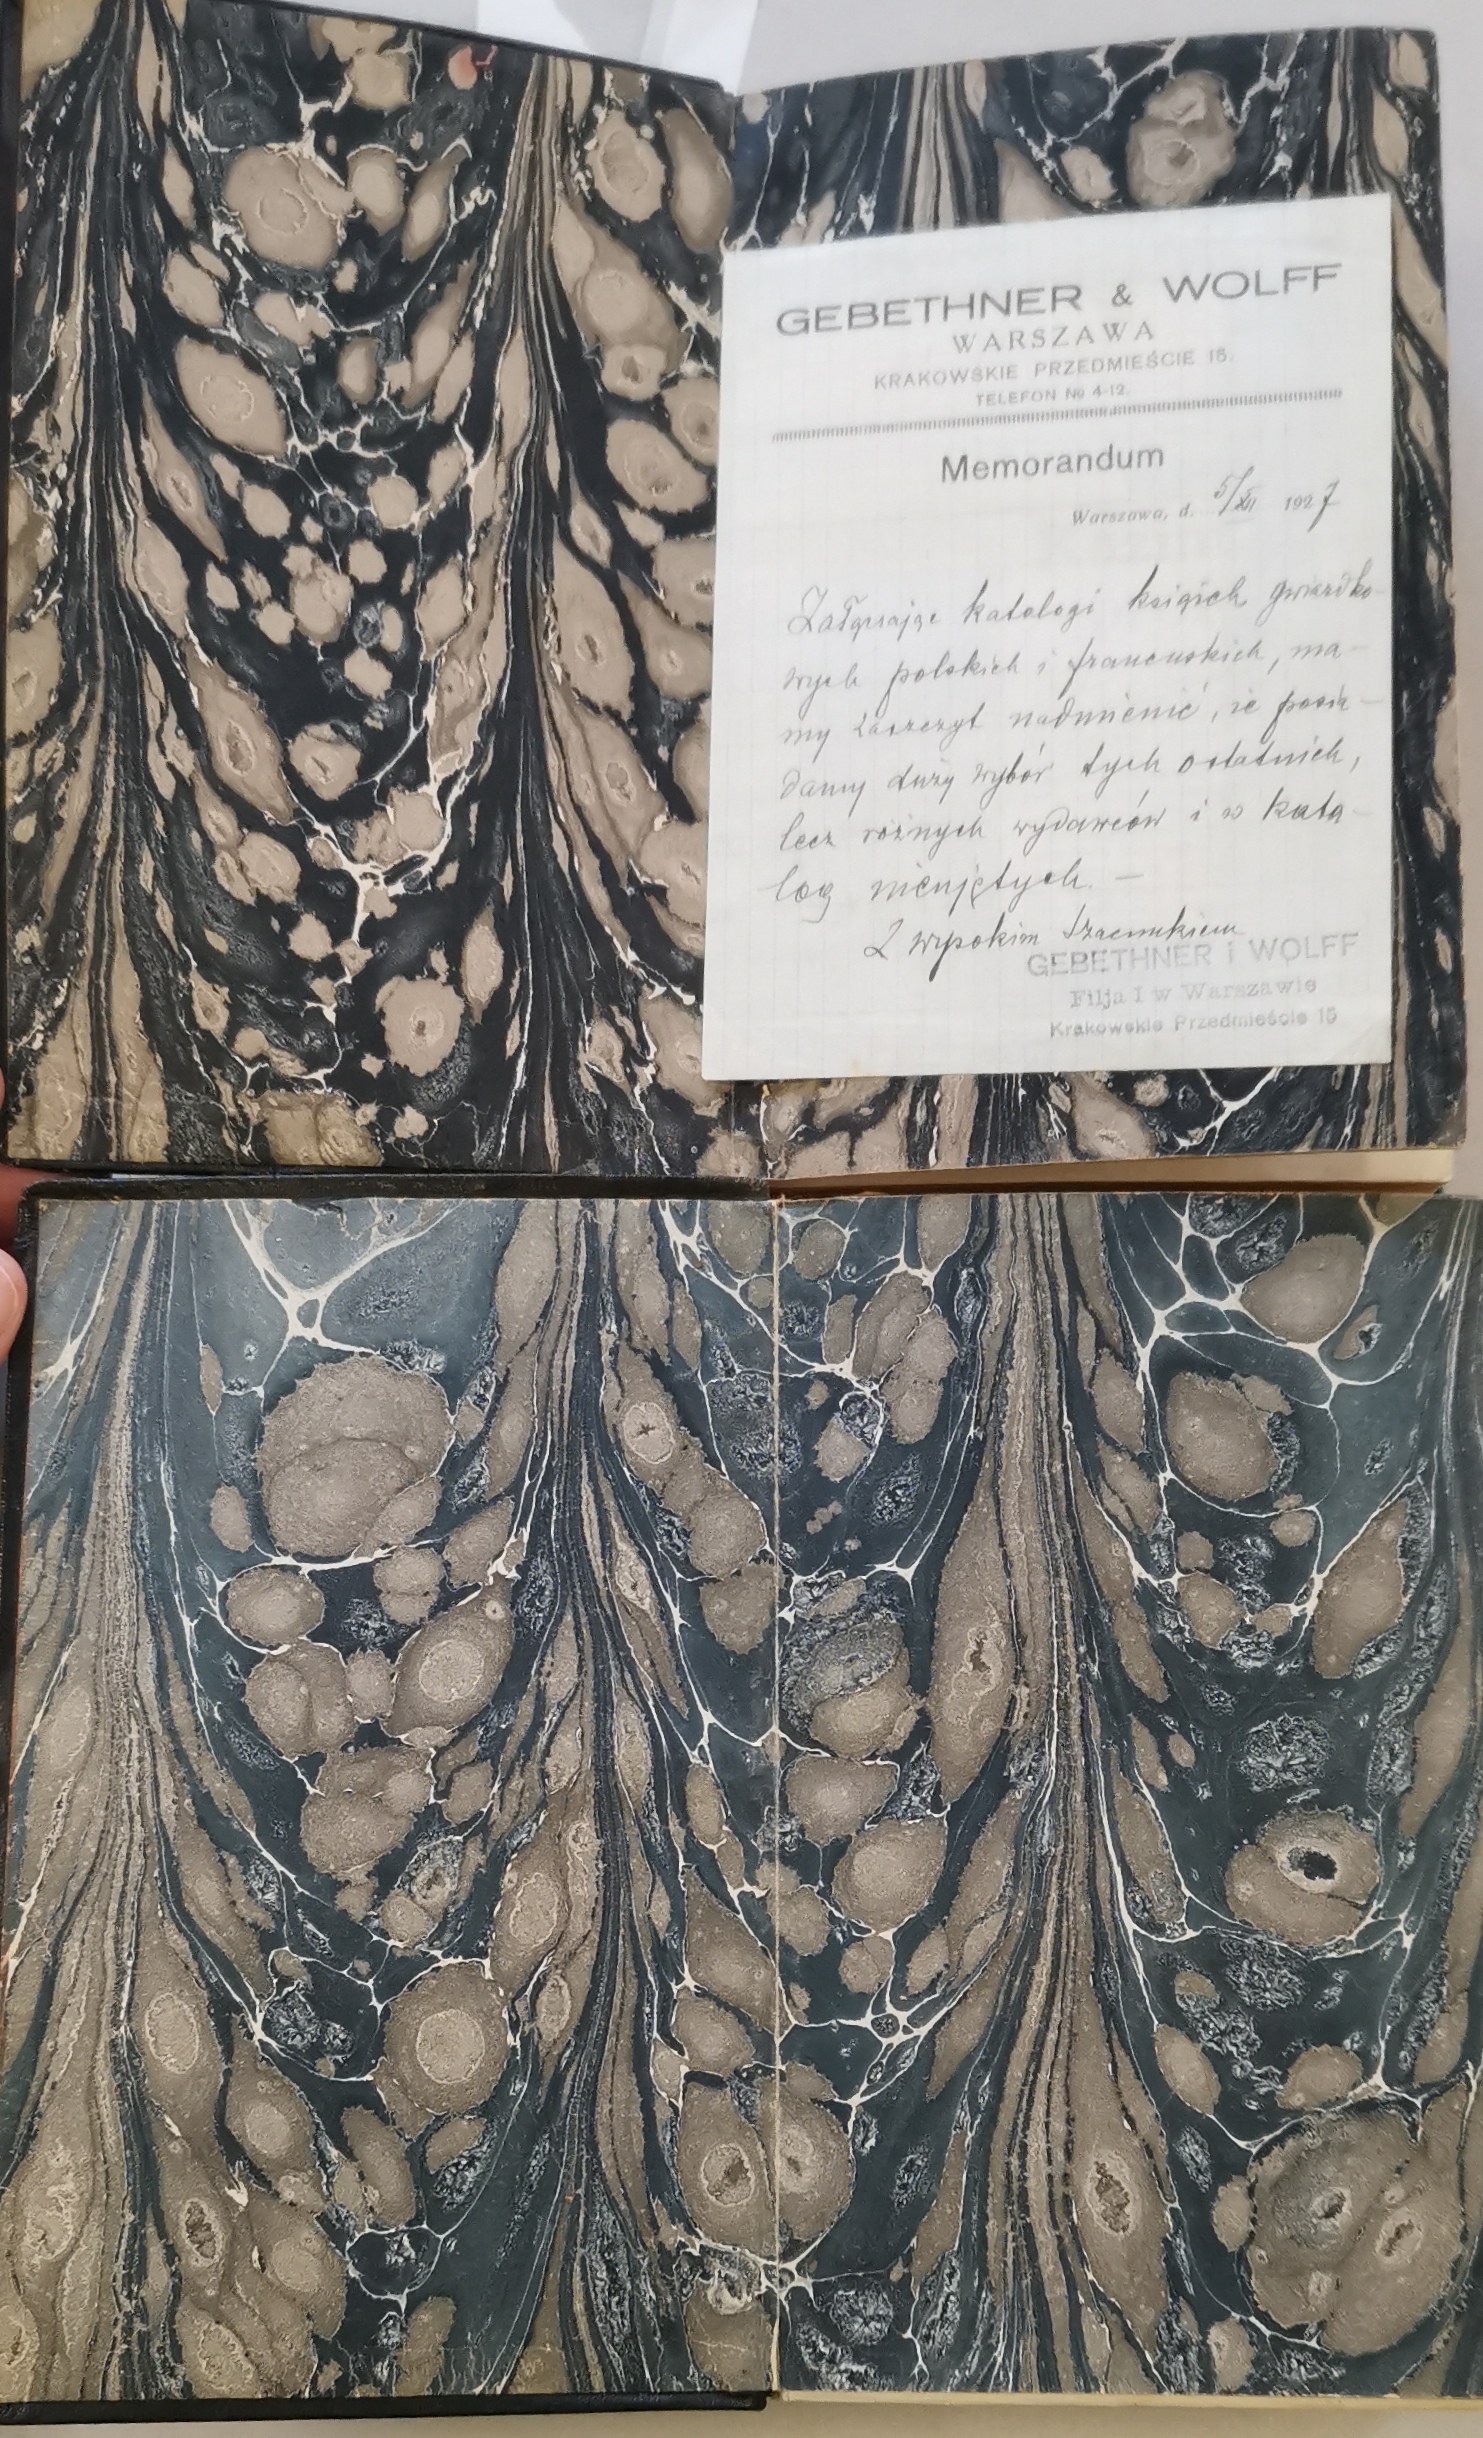 GEBETHNER & WOLFF
WARSZAWA
KRAKOWSKIE PRZEDMIEŚCIE 15.
TELEFON № 4-12.
Memorandum
Warszawa, d. 5/XII 1927
Załączając katalogi książek gwiazdko-
wych polskich i francuskich, ma-
my zaszczyt nadmienić, że posia-
damy duży wybór tych ostatnich,
lecz różnych wydawców i w kata-
log nieujętych. —
Z wysokim szacunkiem
GEBETHNER i WOLFF
Filja I w Warszawie
Krakowskie Przedmieście 15